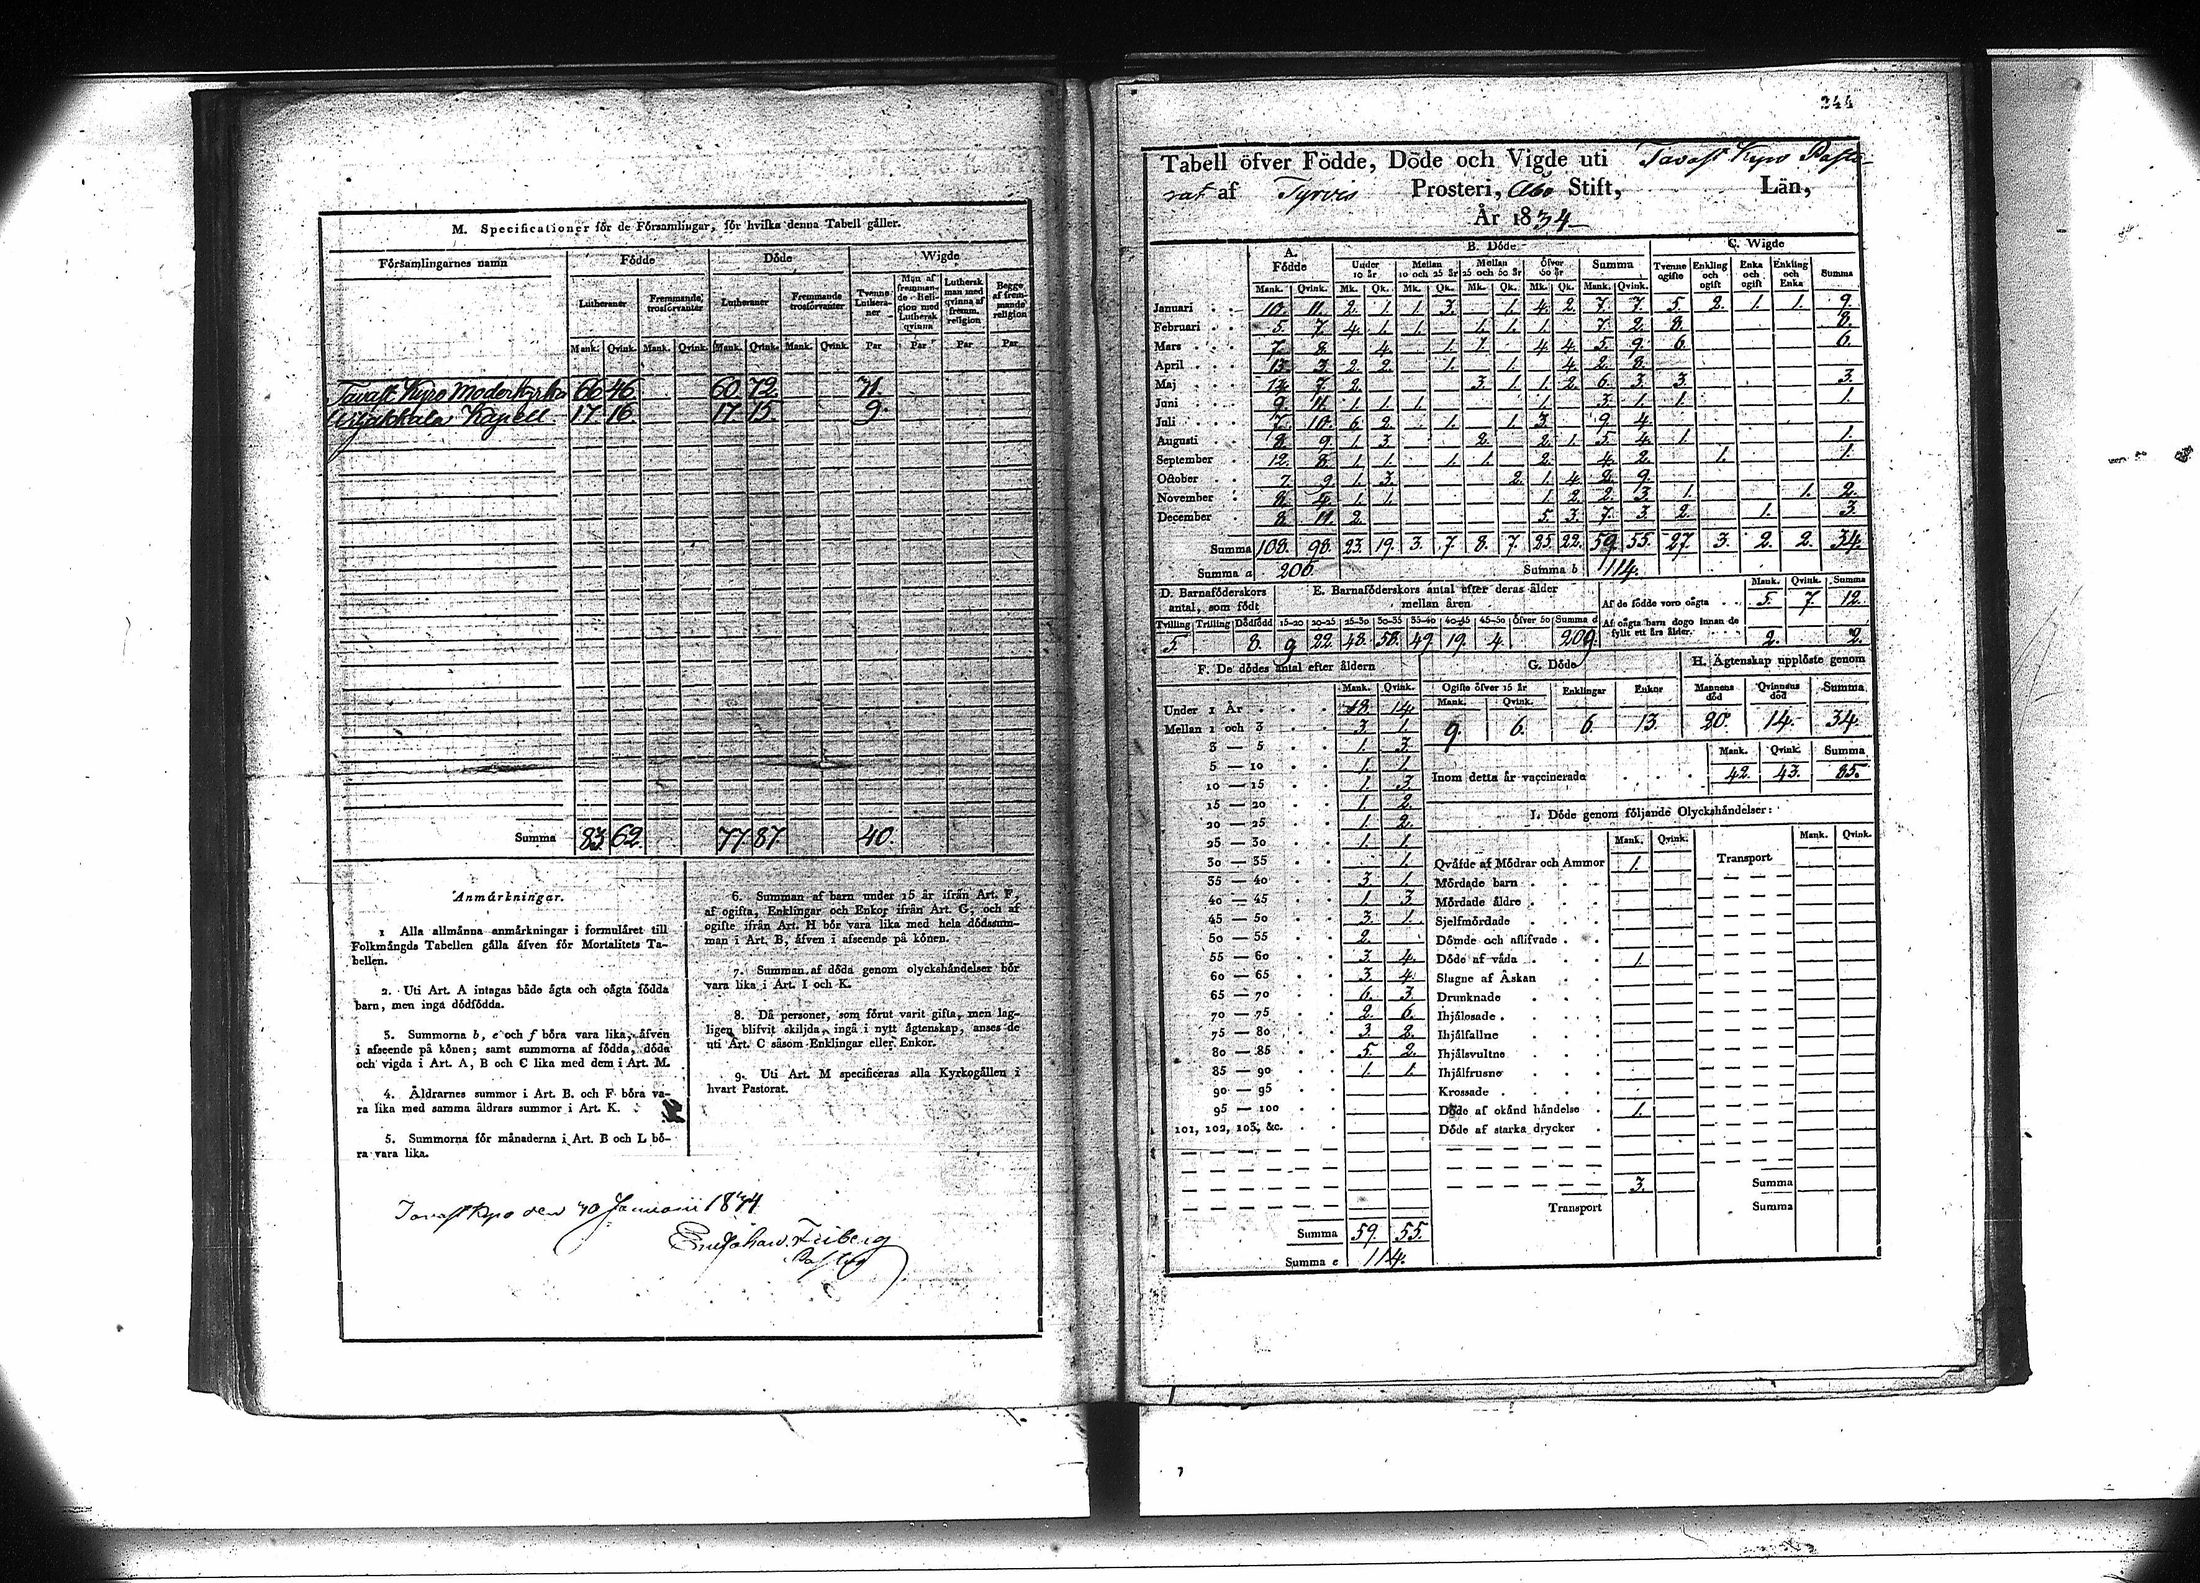 M. Specificationer för de Församlingar, för hvilka denna Tabell gäller.
Församlingarnes namn | Födde | Döde | Wigde
Lutheraner | Fremmande trosförvanter | Lutheraner | Fremmande trosförvanter | Tvenne Lutheraner | Man af fremmande Religion med Luthersk qvinna | Luthersk man med qvinna af fremm. religion | Begge af fremmande religion
Mank. Qvink. Mank. Qvink. Mank. Qvink. Mank. Qvink. Par Par Par Par
Tavast Kyro Moderkyrka 66 46. 60. 72. 31.
Wiljakkala Kapell. 17. 16. 17. 15. 9.
Summa 83 62. 77. 87. 40.
Anmärkningar.
1 Alla allmänna anmärkningar i formuläret till
Folkmängds Tabellen gälla äfven för Mortalitets Ta-
bellen.
2. Uti Art. A intagas både ägta och oägta födda
barn, men inga dödfödda.
3. Summorna b, e och f böra vara lika, äfven
i afseende på könen; samt summorna af födda, döda
och vigda i Art. A, B och C lika med dem i Art. M.
4. Åldrarnes summor i Art. B. och F böra va-
ra lika med samma åldrars summor i Art. K.
5. Summorna för månaderna i Art. B och L bö-
ra vara lika.
6. Summan af barn under 15 år ifrån Art. F,
af ogifta, Enklingar och Enkor ifrån Art. G, och af
ogifte ifrån Art. H bör vara lika med hela dödssum-
man i Art. B, äfven i afseende på könen.
7. Summan af döda genom olyckshändelser bör
vara lika i Art. I och K.
8. Då personer, som förut varit gifta, men lag-
ligen blifvit skiljda, ingå i nytt ägtenskap, anses de
uti Art. C såsom Enklingar eller Enkor.
9. Uti Art. M specificeras alla Kyrkogällen i
hvart Pastorat.
Tavastkyro den 30 Januarii 1834
Friberg
Pastor
244
Tabell öfver Födde, Döde och Vigde uti Tavast Kyro Pasto-
rat af Tyrvis Prosteri, Åbo Stift, Län,
År 1834
A. Födde | B. Döde | C. Wigde
Under 10 år | Mellan 10 och 25 år | Mellan 25 och 60 år | Öfver 60 år | Summa | Tvenne ogifte | Enkling och ogift | Enka och ogift | Enkling och Enka | Summa
Mank. Qvink. Mk. Qk. Mk. Qk. Mk. Qk. Mk. Qk. Mank. Qvink.
Januari 10. 11. 2. 1 1 3. 1. 4. 2. 7. 7. 5. 2. 1. 1. 9.
Februari 5. 7. 4. 1. 1 1. 1. 1. 7. 2. 8. 8.
Mars 7. 8. 4. 1. 1. 4 4. 5. 9. 6. 6.
April 13. 3. 2. 2. 1. 1. 4. 2. 8.
Maj 12. 7. 2. 3. 1 1. 2. 6. 3. 3. 3.
Juni 9. 11. 1. 1. 1. 1. 3. 1. 1. 1.
Juli 7. 10. 6 2. 1. 1. 3. 9. 4.
Augusti 8. 9. 1. 3. 2. 2. 1. 5. 4. 1. 1.
September 12. 8. 1. 1. 1. 1. 2. 4. 2. 1. 1.
October 7. 9. 1. 3. 2. 1. 4. 2. 9.
November 8. 4. 1. 1. 1. 2. 2. 3. 1. 1. 2.
December 8. 11. 2. 5. 3. 7. 3. 2. 1. 3.
Summa 108. 98. 23. 19. 3. 7. 8. 7. 25. 22. 59. 55. 27. 3. 2. 2. 34.
Summa a 206. Summa b 114.
D. Barnaföderskors antal, som födt
E. Barnaföderskors antal efter deras ålder mellan åren
Tvilling Trilling Dödfödd 15-20 20-25 25-30 30-35 35-40 40-45 45-50 Öfver 50 Summa d
5. 8. 9 22. 48. 58. 49. 19. 4. 209.
Mank. Qvink. Summa
Af de födde voro oägta 5. 7. 12.
Af oägta barn dogo innan de fyllt ett års ålder 2. 2.
F. De dödes antal efter åldern
Mank. Qvink.
Under 1 År 18. 14.
Mellan 1 och 3 3. 1.
3 — 5 1. 3.
5 — 10 1. 1.
10 — 15 1. 3.
15 — 20 1. 2.
20 — 25 1. 2.
25 — 30 1. 1.
30 — 35 1.
35 — 40 3. 1.
40 — 45 1. 3
45 — 50 3. 1.
50 — 55 2.
55 — 60 3. 4.
60 — 65 3. 4.
65 — 70 6. 3.
70 — 75 2. 6.
75 — 80 3. 2.
80 — 85 5. 2.
85 — 90 1. 1.
90 — 95
95 — 100
101, 102, 103, &c.
Summa 59. 55.
Summa e 114.
G. Döde
Ogifte öfver 15 år | Enklingar | Enkor
Mank. Qvink.
9. 6. 6 13.
H. Ägtenskap upplöste genom
Mannens död | Qvinnans död | Summa
20. 14. 34.
Mank. Qvink. Summa
Inom detta år vaccinerade 42. 43. 85.
I. Döde genom följande Olyckshändelser:
Mank. Qvink. Mank. Qvink.
Qväfde af Mödrar och Ammor 1. Transport
Mördade barn
Mördade äldre
Sjelfmördade
Dömde och aflifvade
Döde af våda 1.
Slagne af Åskan
Drunknade
Ihjälosade
Ihjälfallne
Ihjälsvultne
Ihjälfrusne
Krossade
Döde af okänd händelse 1.
Döde af starka drycker
3. Summa
Transport Summa